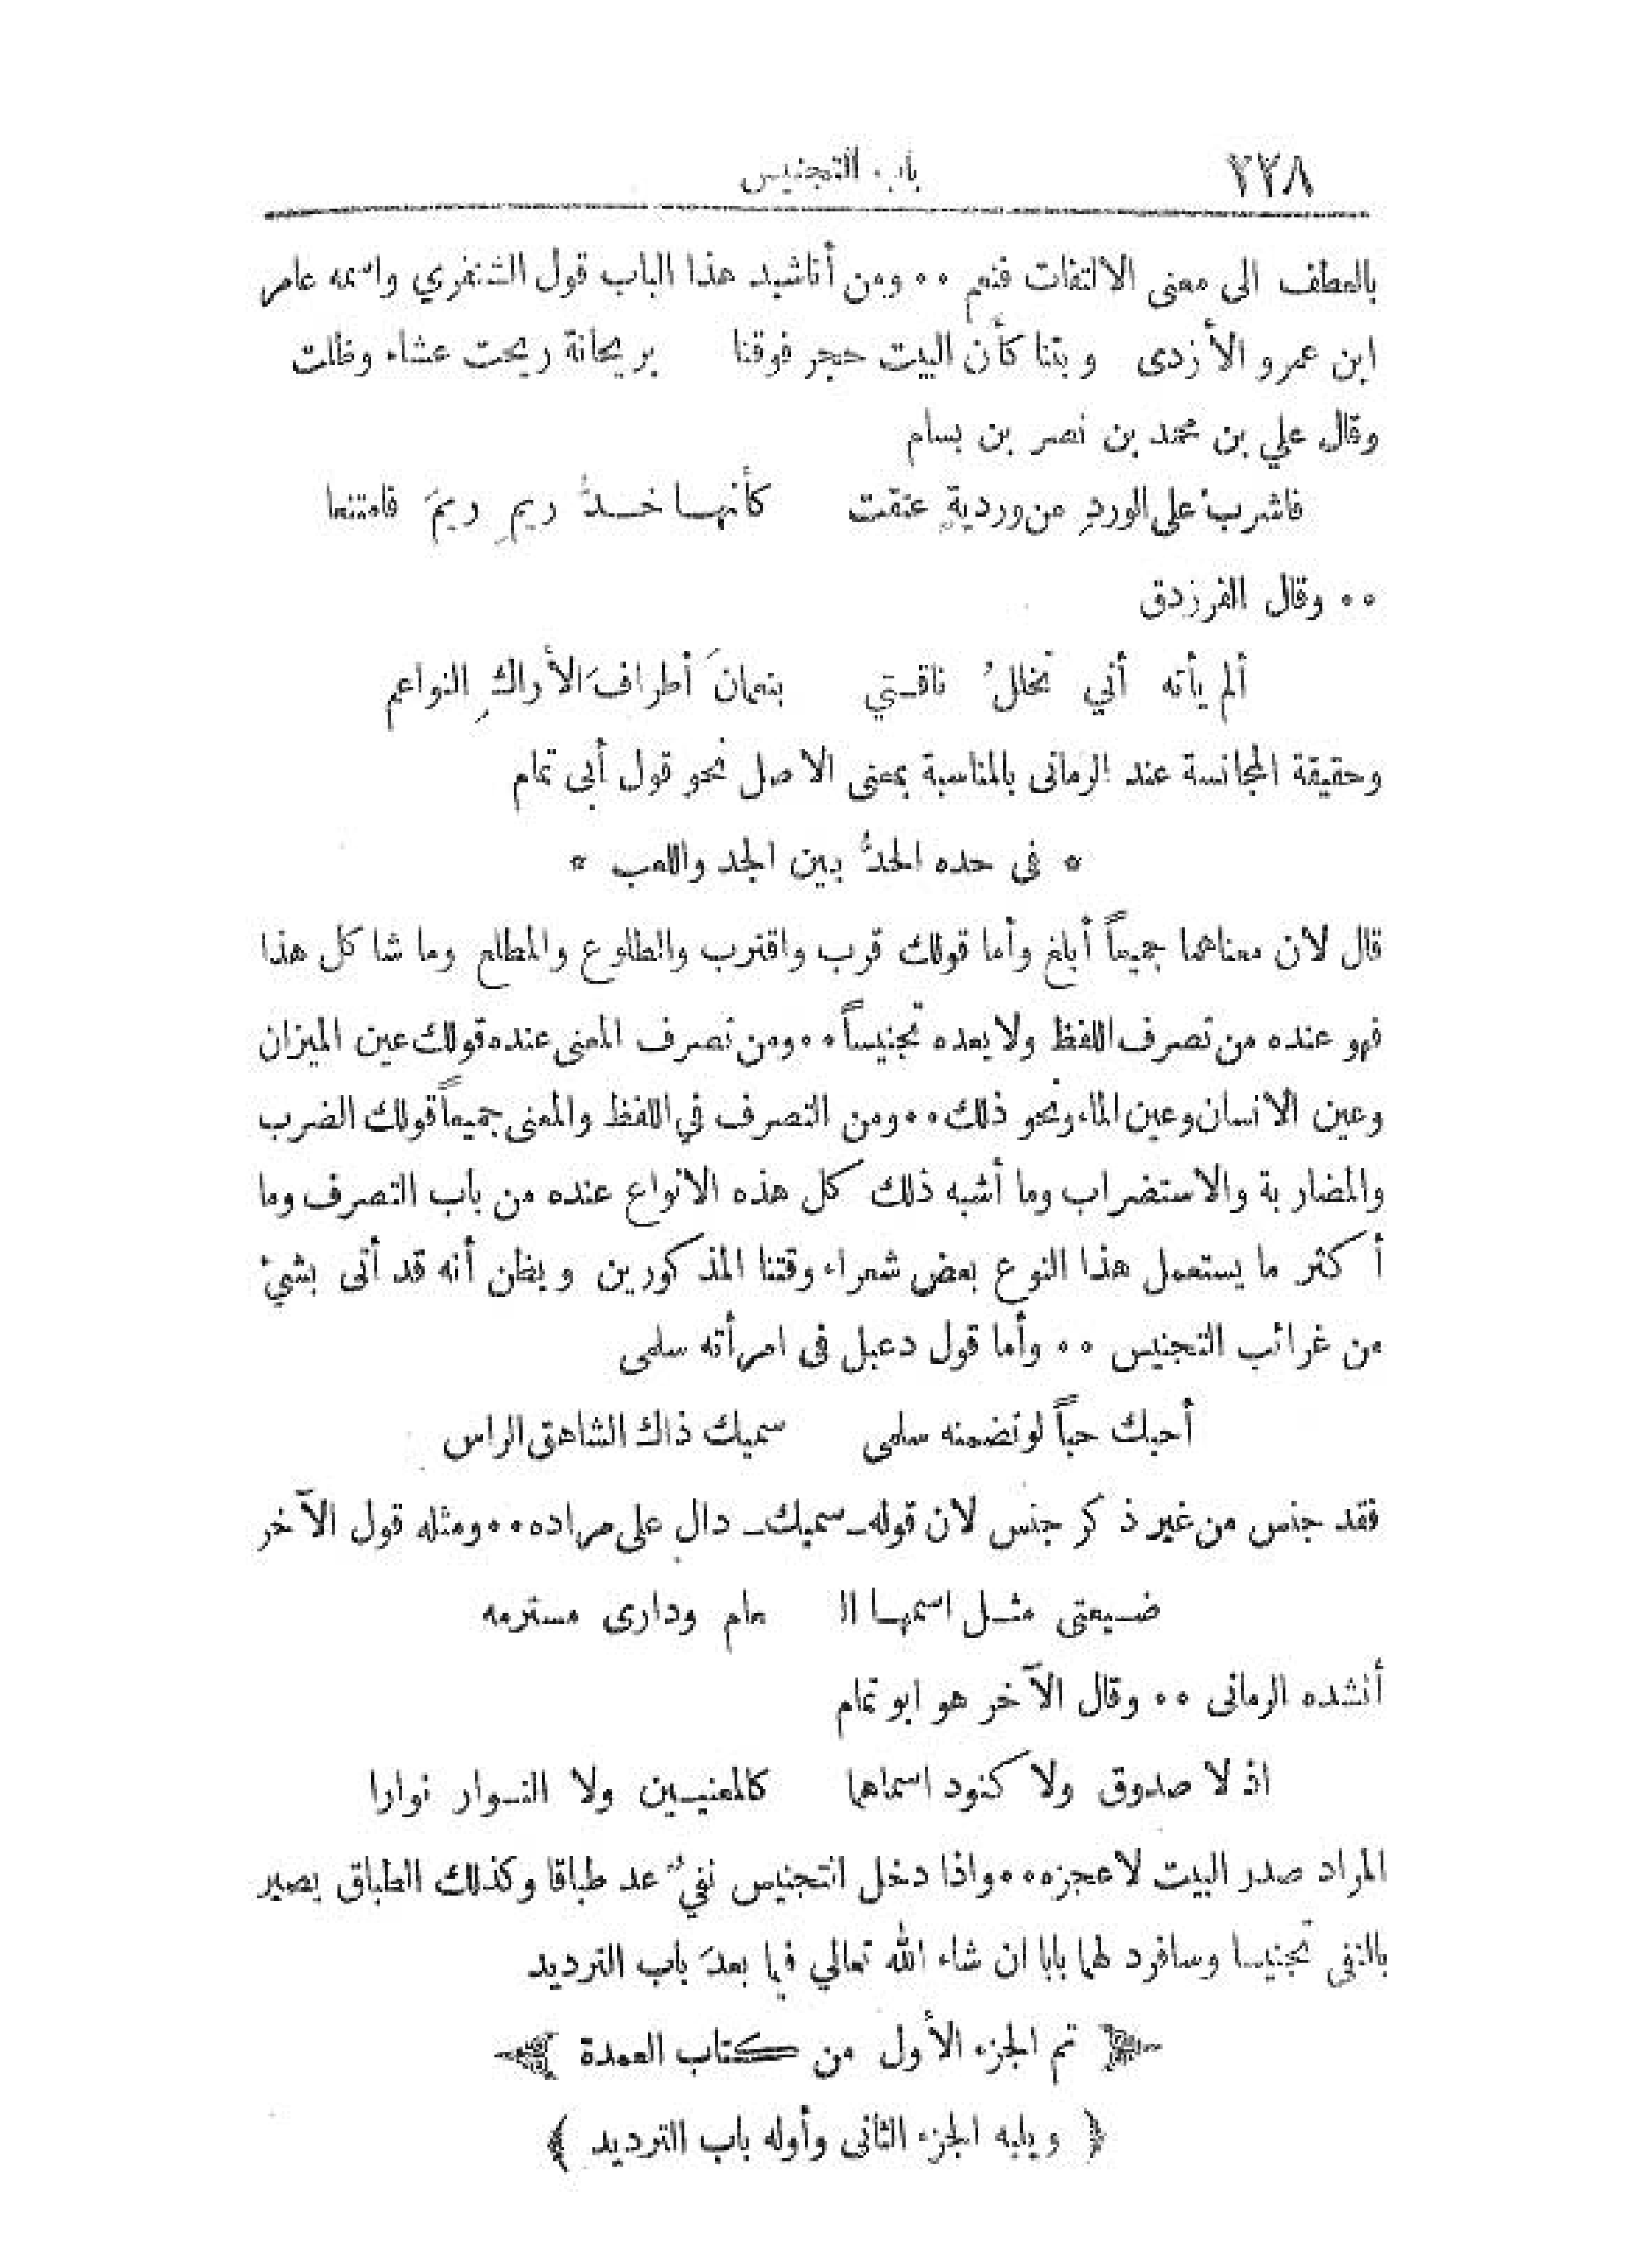 ٢٢٨ باب التجنيس
بالعطف الى معنى الالتفات فنعم ٠٠ ومن أناشيد هذا الباب قول الشنفري واسمه عامر
ابن عمرو الأزدى وبتنا كأن البيت حجر فوقنا بريحانة ريحت عشاء وظلت
وقال علي بن محمد بن نصر بن بسام
فاشرب على الوردِ من ورديةٍ عتقت كأنها خدُّ ريمِ ريمَ فامتنعا
٠٠ وقال الفرزدق
ألم يأته أني تخللُ ناقتي بنعمانَ أطرافَ الأراكِ النواعم
وحقيقة المجانسة عند الرمانى بالمناسبة بمعنى الاصل نحو قول أبى تمام
* فى حده الحدُّ بين الجد واللعب *
قال لان معناهما جميعاً أبلغ وأما قولك قرب واقترب والطلوع والمطلع وما شاكل هذا
فهو عنده من تصرف اللفظ ولا يعده تجنيساً ٠٠ ومن تصرف المعنى عنده قولك عين الميزان
وعين الانسان وعين الماء ونحو ذلك ٠٠ ومن التصرف في اللفظ والمعنى جميعاً قولك الضرب
والمضاربة والاستضراب وما أشبه ذلك كل هذه الانواع عنده من باب التصرف وما
أكثر ما يستعمل هذا النوع بعض شعراء وقتنا المذكورين ويظن أنه قد أتى بشيْ
من غرائب التجنيس ٠٠ وأما قول دعبل فى امرأته سلمى
أحبك حباً لو تضمنه سلمى سميك ذاك الشاهق الراس
فقد جنس من غير ذكر جنس لان قوله ـ سميك ـ دال على مراده ٠٠ ومثله قول الآخر
ضيعتى مثل اسمها ال عام ودارى مسترمه
أنشده الرمانى ٠٠ وقال الآخر هو ابو تمام
اذ لا صدوق ولا كنود اسماهما كالمعنيين ولا النوار نوارا
المراد صدر البيت لا عجزه ٠٠ واذا دخل التجنيس نفيٌ عد طباقا وكذلك الطباق بصير
بالنفى تجنيسا وسافرد لهما بابا ان شاء الله تعالي فيما بعدَ باب الترديد
تم الجزء الأول من كتاب العمدة
﴿ ويليه الجزء الثانى وأوله باب الترديد ﴾